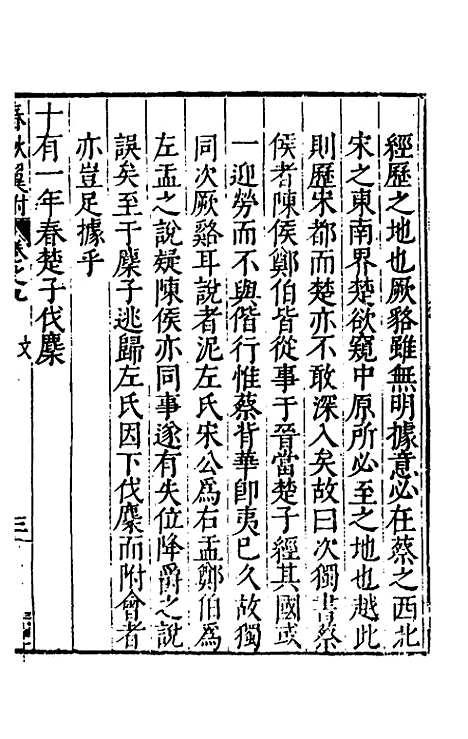 經歷之地也厥貉雖無明據意必在蔡之西北
宋之東南界楚欲窺中原所必至之地也越此
則歷宋都而楚亦不敢深入矣故曰次獨書蔡
侯者陳侯鄭伯皆從事于晉當楚子經其國或
一迎勞而不與偕行惟蔡背華即夷已久故獨
同次厥谿耳說者泥左氏宋公爲右盂鄭伯爲
左盂之說疑陳侯亦同事遂有失位降爵之說
誤矣至于麇子逃歸左氏因下伐麇而附會者
亦豈足據乎
十有一年春楚子伐麇
春秋翼附 卷之九 文 三